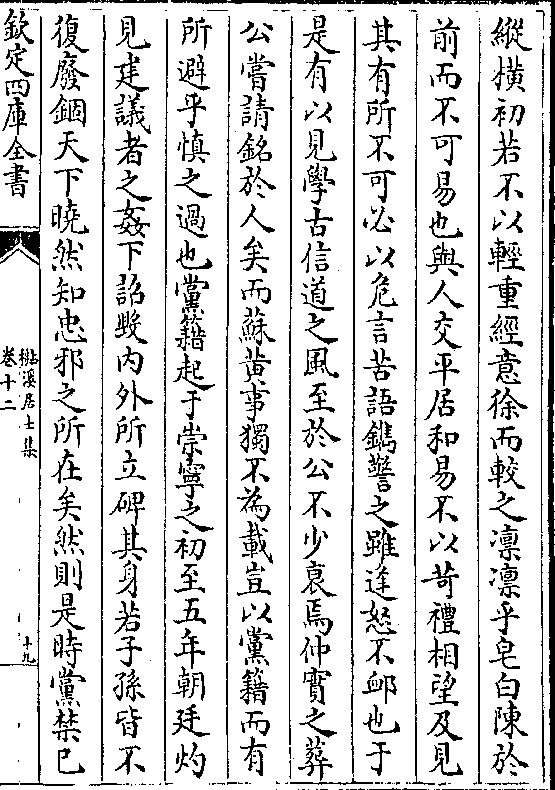 縱橫初若不以輕重經意徐而較之凛凛乎皂白陳於
前而不可易也與人交平居和易不以苛禮相望及見
其有所不可必以危言苦語鐫警之雖逢怒不卹也于
是有以見學古信道之風至於公不少衰焉仲實之葬
公嘗請銘於人矣而蘇黄事獨不為載豈以黨籍而有
所避乎慎之過也黨籍起于崇寧之初至五年朝廷灼
見建議者之姦下詔毁内外所立碑其身若子孫皆不
復廢錮天下曉然知忠邪之所在矣然則是時黨禁已
欽定四庫全書
溪居士集
卷十二
十九